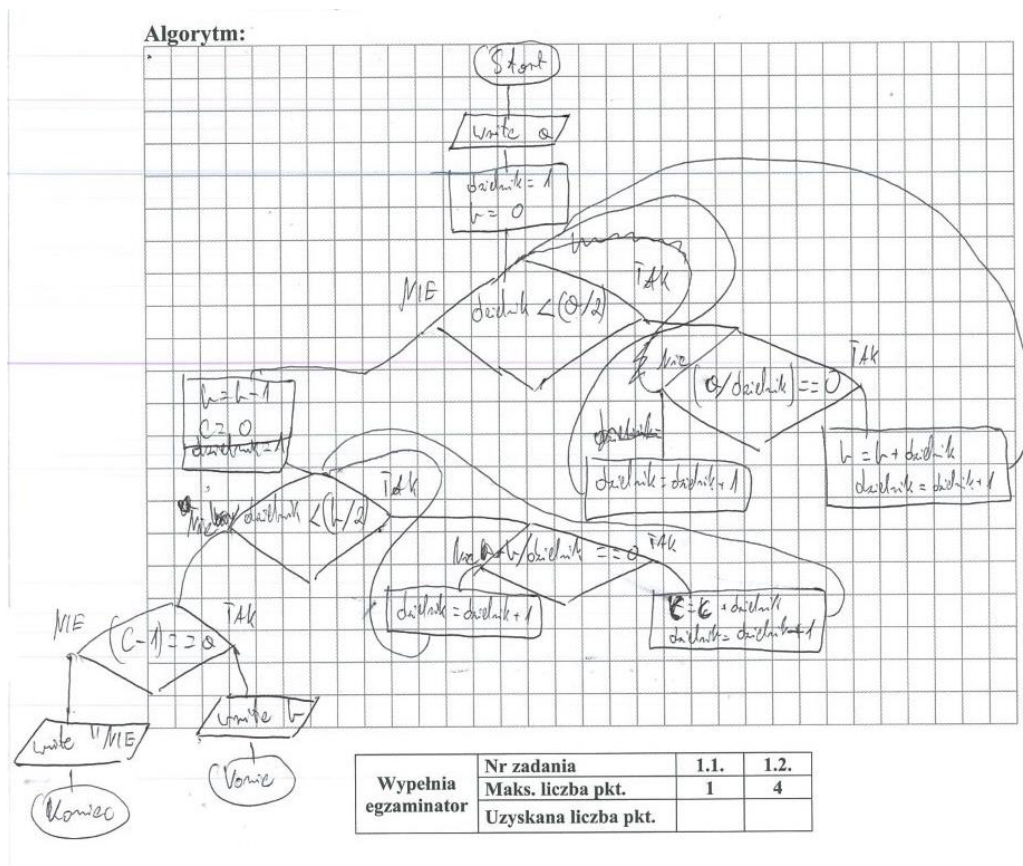 Algorytm:
Start
write a
dzielnik = 1
b = 0
NIE
TAK
dzielnik < (a/2)
Nie
TAK
(a/dzielnik) == 0
b = b - 1
c = 0
dzielnik = 1
dzielnik = dzielnik + 1
b = b + dzielnik
dzielnik = dzielnik + 1
Nie
dzielnik < (b/2)
TAK
b/dzielnik == 0
TAK
dzielnik = dzielnik + 1
c = c + dzielnik
dzielnik = dzielnik + 1
NIE
TAK
(c-1) == a
write "NIE
write b
Koniec
Wypełnia egzaminator
Nr zadania 1.1. 1.2.
Maks. liczba pkt. 1 4
Uzyskana liczba pkt.